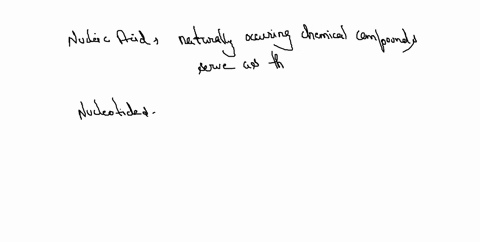 Nucleic Acid, naturally occuring chemical compounds
serve as th
Nucleotides.